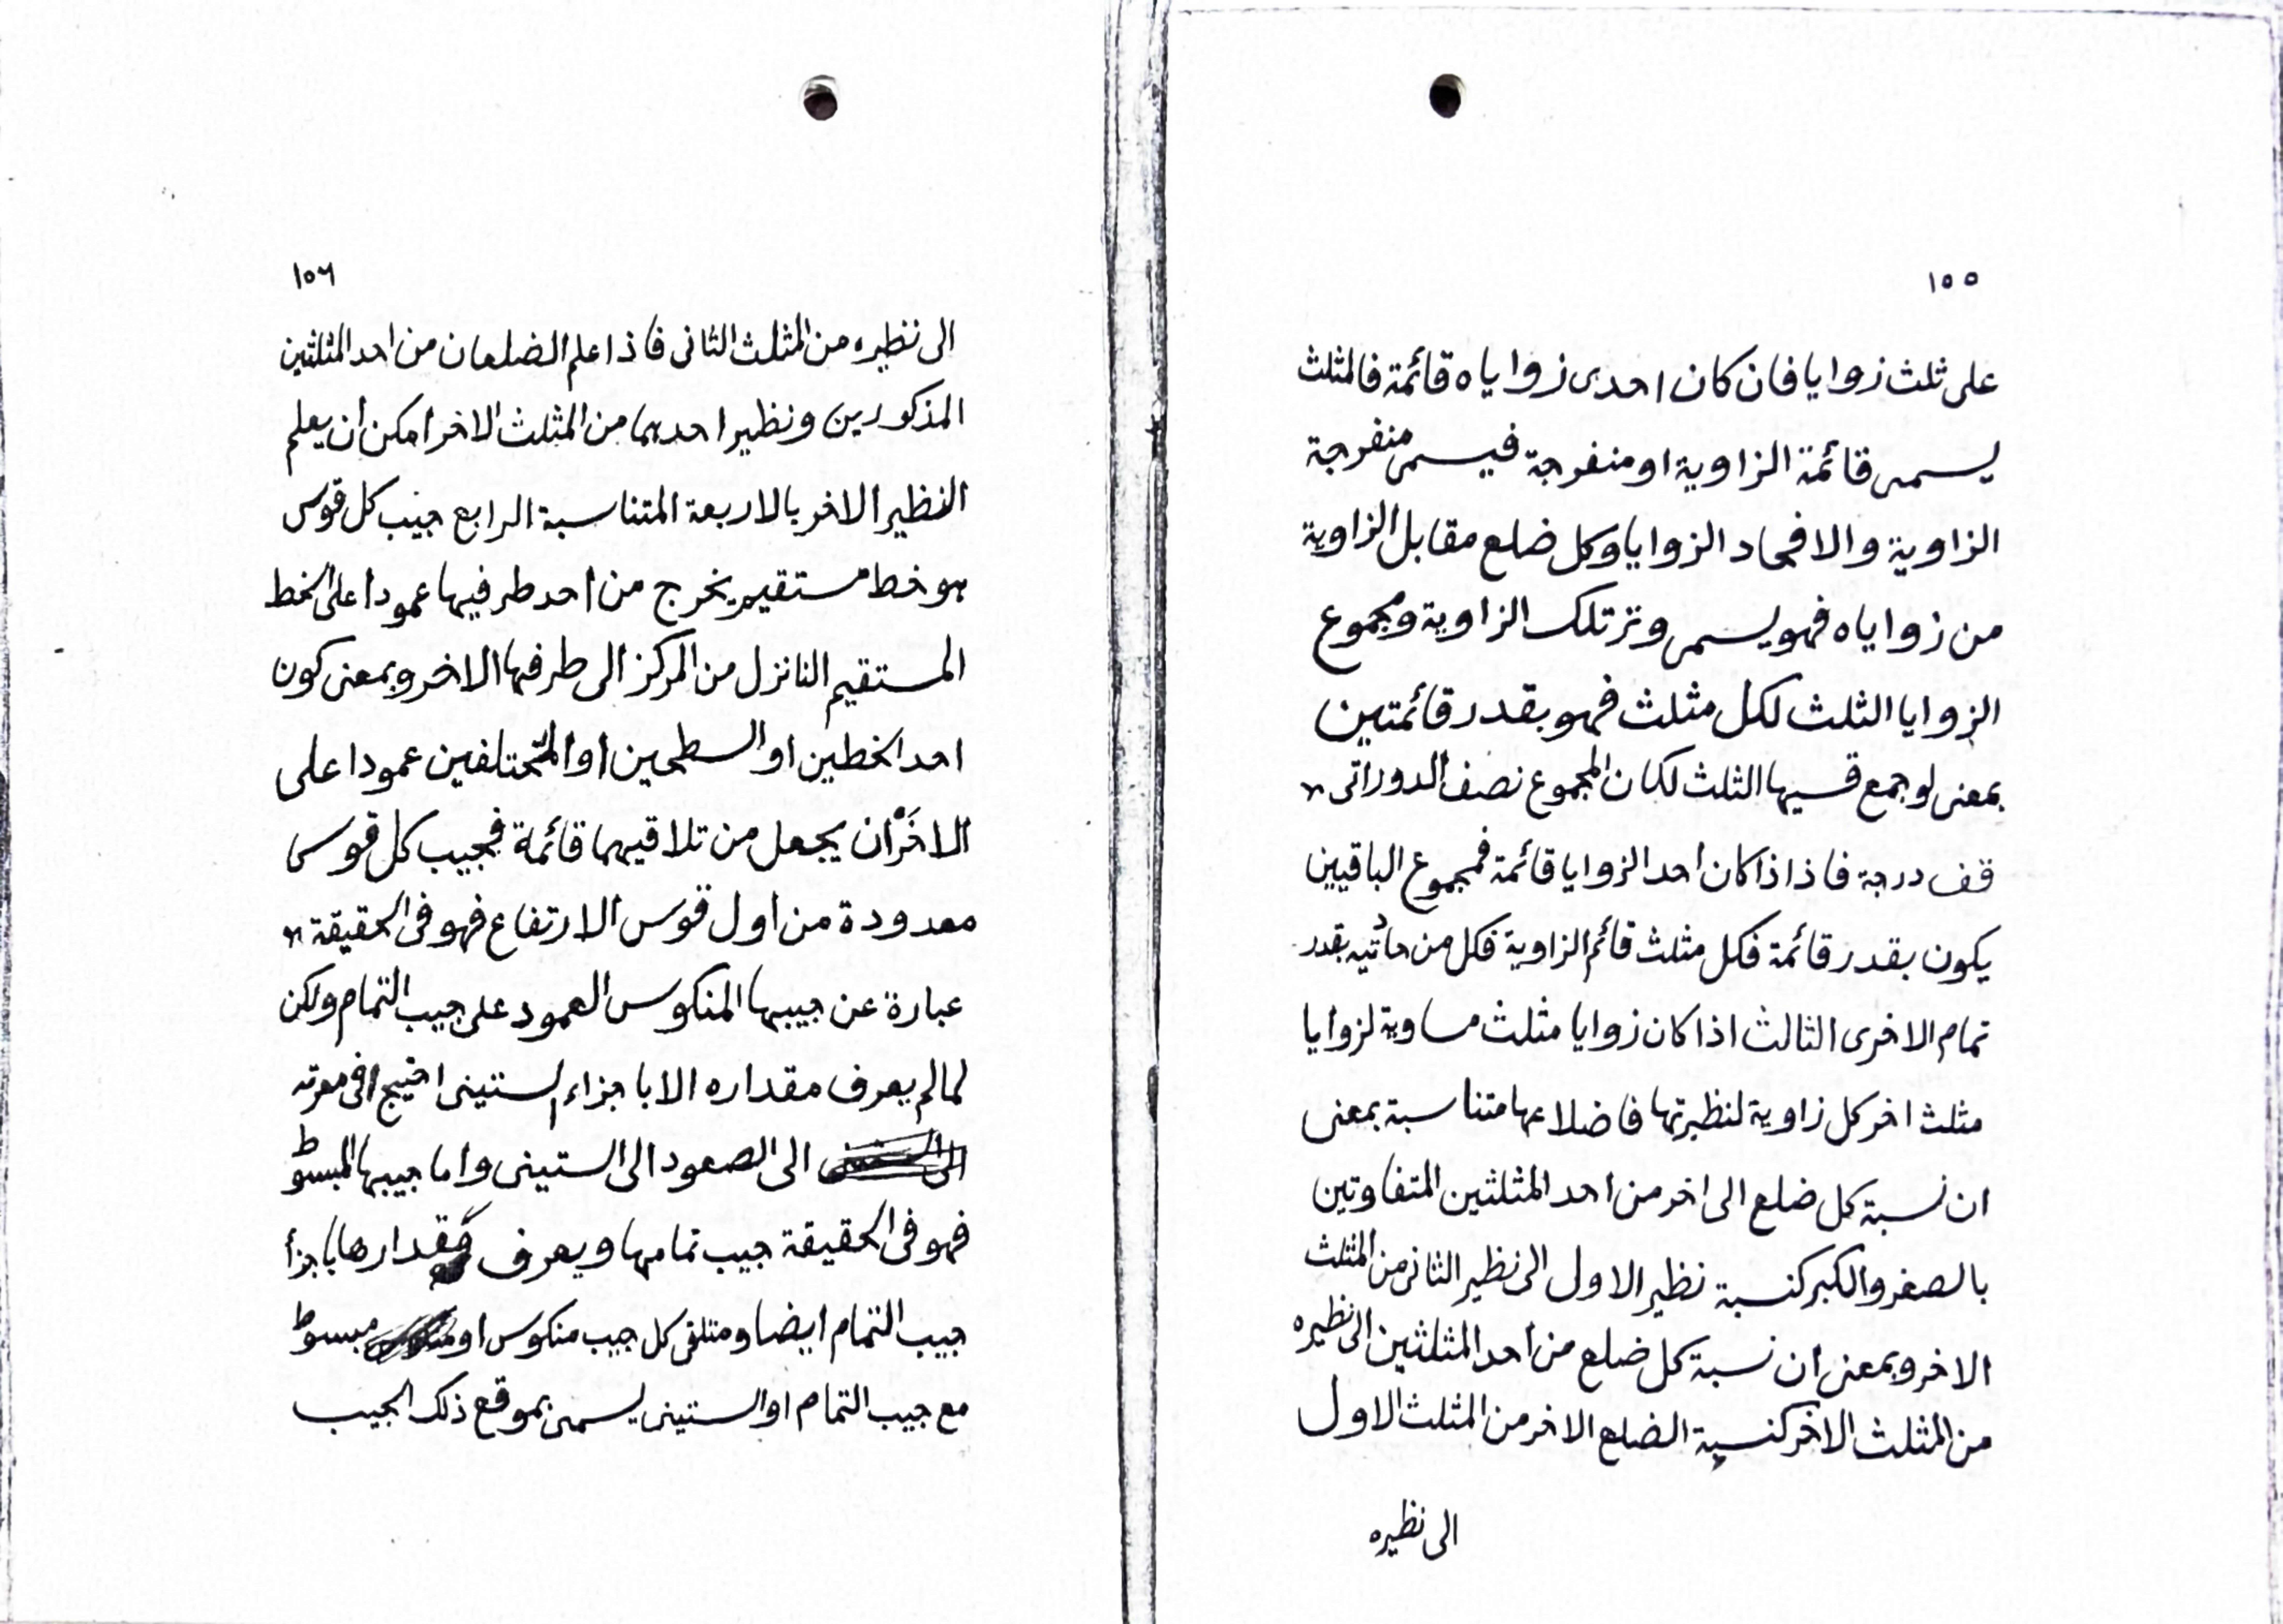 ١٥٥
على ثلث زوايا فان كان احدى زواياه قائمة فالمثلث
يسمى قائمة الزاوية او منفرجة فيسمى منفرجة
الزاوية والا فحاد الزوايا وكل ضلع مقابل الزاوية
من زواياه فهو يسمى وتر تلك الزاوية ومجموع
الزوايا الثلث لكل مثلث فهو بقدر قائمتين
بمعنى لو جمع قسيها الثلث لكان المجموع نصف الدور اتى
قف درجة فاذا ذا كان احد الزوايا قائمة فمجموع الباقيين
يكون بقدر قائمة فكل مثلث قائم الزاوية فكل من حادتيه بقدر
تمام الاخرى الثالث اذا كان زوايا مثلث مساوية لزوايا
مثلث اخر كل زاوية لنظيرتها فاضلاعها متناسبة بمعنى
ان نسبة كل ضلع الى اخر من احد المثلثين المتفاوتين
بالصغر والكبر كنسبة نظير الاول الى نظير الثانى من المثلث
الاخر وبمعنى ان نسبة كل ضلع من احد المثلثين الى نظيره
من المثلث الاخر كنسبة الضلع الاخر من المثلث الاول
الى نظيره
١٥٦
الى نظيره من المثلث الثانى فاذا علم الضلعان من احد المثلثين
المذكورين ونظير احديهما من المثلث الاخر امكن ان يعلم
النظير الاخر بالاربعة المتناسبة الرابع جيب كل قوس
هو خط مستقيم يخرج من احد طرفيها عمودا على الخط
المستقيم النازل من المركز الى طرفها الاخر وبمعنى كون
احد الخطين او السطحين او المختلفين عمودا على
الاخَرْ ان يجعل من تلاقيهما قائمة فجيب كل قوس
معدودة من اول قوس الارتفاع فهو فى الحقيقة
عبارة عن جيبها المنكوس العمود على جيب التمام ولكن
لما لم يعرف مقداره الا باجزاء الستينى احتيج فى معرفته
الى الصعود الى الستينى واما جيبها المبسوط
فهو فى الحقيقة جيب تمامها ويعرف مقدارها باجزأ
جيب التمام ايضا ومتلقى كل جيب منكوس او مبسوط
مع جيب التمام او الستينى يسمى بموقع ذلك الجيب